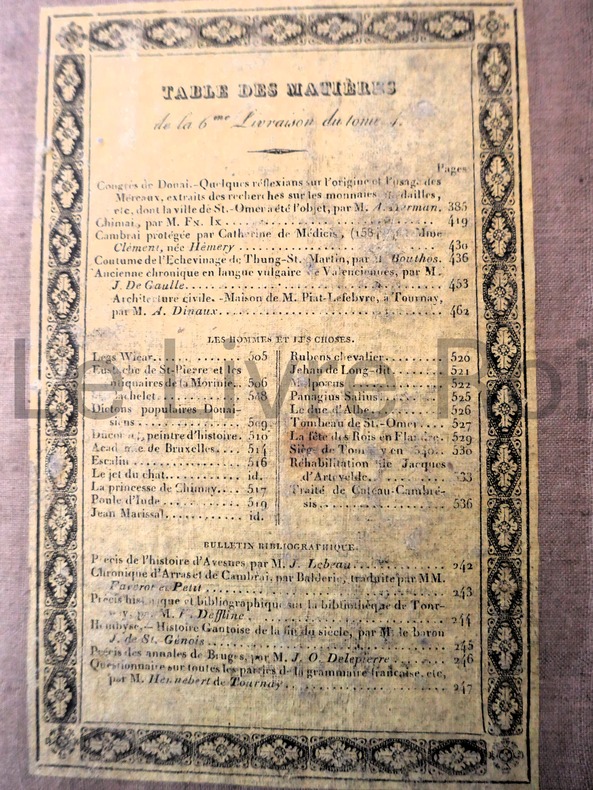 TABLE DES MATIÈRES
de la 6me Livraison du tome 4.
Pages
Congrès de Douai.-Quelques réflexians sur l'origine et l'usage des
Méreaux, extraits des recherches sur les monnaies, médailles,
etc, dont la ville de St.-Omer a été l'objet, par M. A. 385
Chimai, par M. Fs. Ix. 419
Cambrai protégée par Catherine de Médicis, par Mme
Clément, née Hémery 430
Coutume de l'Echevinage de Thung-St.-Martin, par M. Bouthos. 436
Ancienne chronique en langue vulgaire de Valenciennes, par M.
J. De Gaulle 453
Architecture civile.-Maison de M. Piat-Lefebvre, à Tournay,
par M. A. Dinaux 462
LES HOMMES ET LES CHOSES.
Legs Wicar 505
Eustache de St-Pierre et les
miquaires de la Morinie 506
achelet 508
Dictons populaires Douai-
siens 509
peintre d'histoire. 510
Académie de Bruxelles 514
Escalin 516
Le jet du chat id.
La princesse de Chimay 517
Poule d'Inde 519
Jean Marissal id.
Rubens chevalier 520
Jehan de Long-dit 521
522
Panagius Salius 525
Le duc d'Albe 526
Tombeau de St.-Omer 527
La fête des Rois en Flandre. 529
Siège de Tournay en 530
Réhabilitation de Jacques
d'Artevelde 33
Traité de Cateau-Cambré-
sis 536
BULLETIN BIBLIOGRAPHIQUE.
Précis de l'histoire d'Avesnes par M. J. Lebeau 242
Chronique d'Arras et de Cambrai, par Balderic, traduite par MM.
Faverot et Petit 243
Précis historique et bibliographique sur la bibliothèque de Tour-
nay, par M. F. Deffline 244
Hembyse,-Histoire Gantoise de la fin du siècle, par M. le baron
J. de St. Génois 245
Précis des annales de Bruges, par M. J. O. Delepierre 246
Questionnaire sur toutes les parties de la grammaire française, etc,
par M. Hennebert de Tournay 247
Le Livre Roi